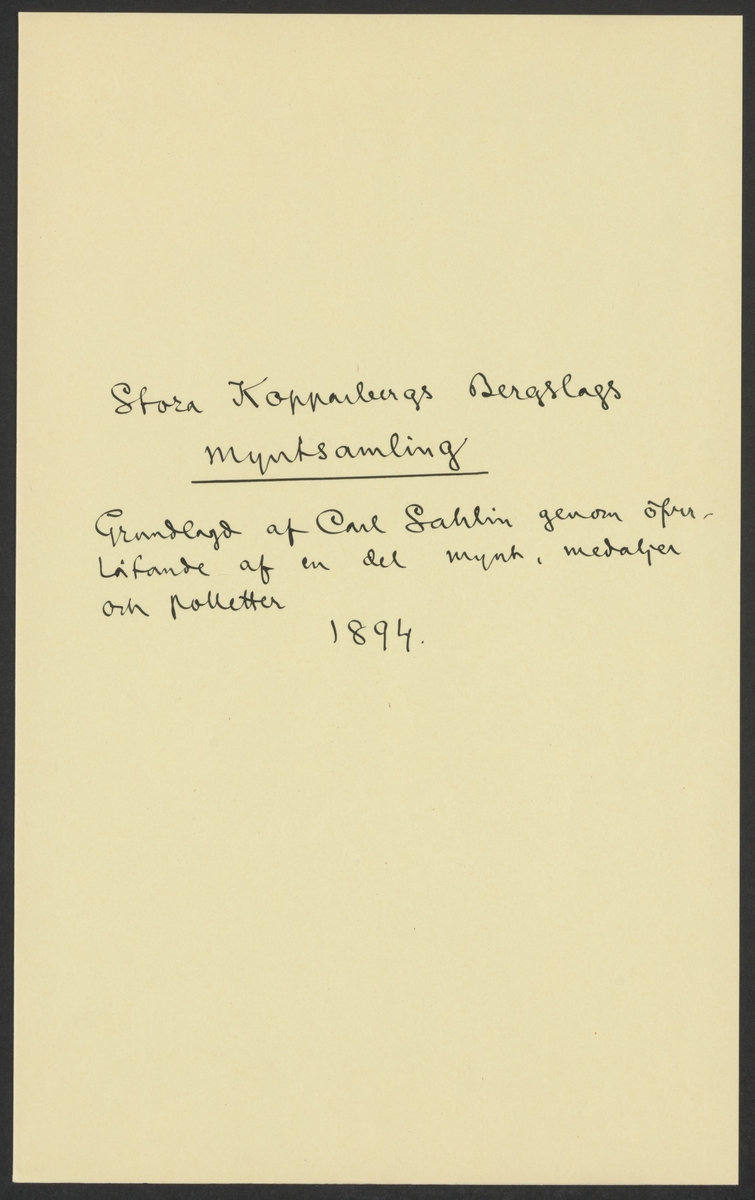 Stora Kopparbergs Bergslags
Myntsamling
Grundlagd af Carl Sahlin genom öfver-
låtande af en del mynt, medaljer
och polletter
1894.